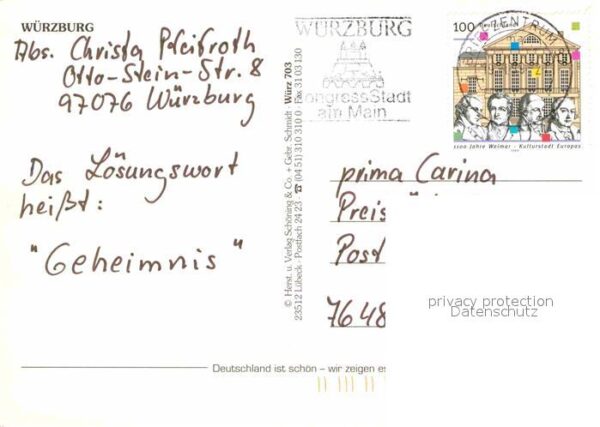 WÜRZBURG
Abs. Christa Pfeifroth
Otto-Stein-Str. 8
97076 Würzburg
Das Lösungswort
heißt:
"Geheimnis"
© Herst. u. Verlag Schöning & Co. + Gebr. Schmidt Würz 703
23512 Lübeck · Postfach 24 23 · ☎ (04 51) 310 310 · Fax 31 03 130
WÜRZBURG
KongressStadt
am Main
100 Deutschland
ZENTRUM
1100 Jahre Weimar - Kulturstadt Europas
prima Carina
Preis
Post
7648
privacy protection
Datenschutz
Deutschland ist schön – wir zeigen es